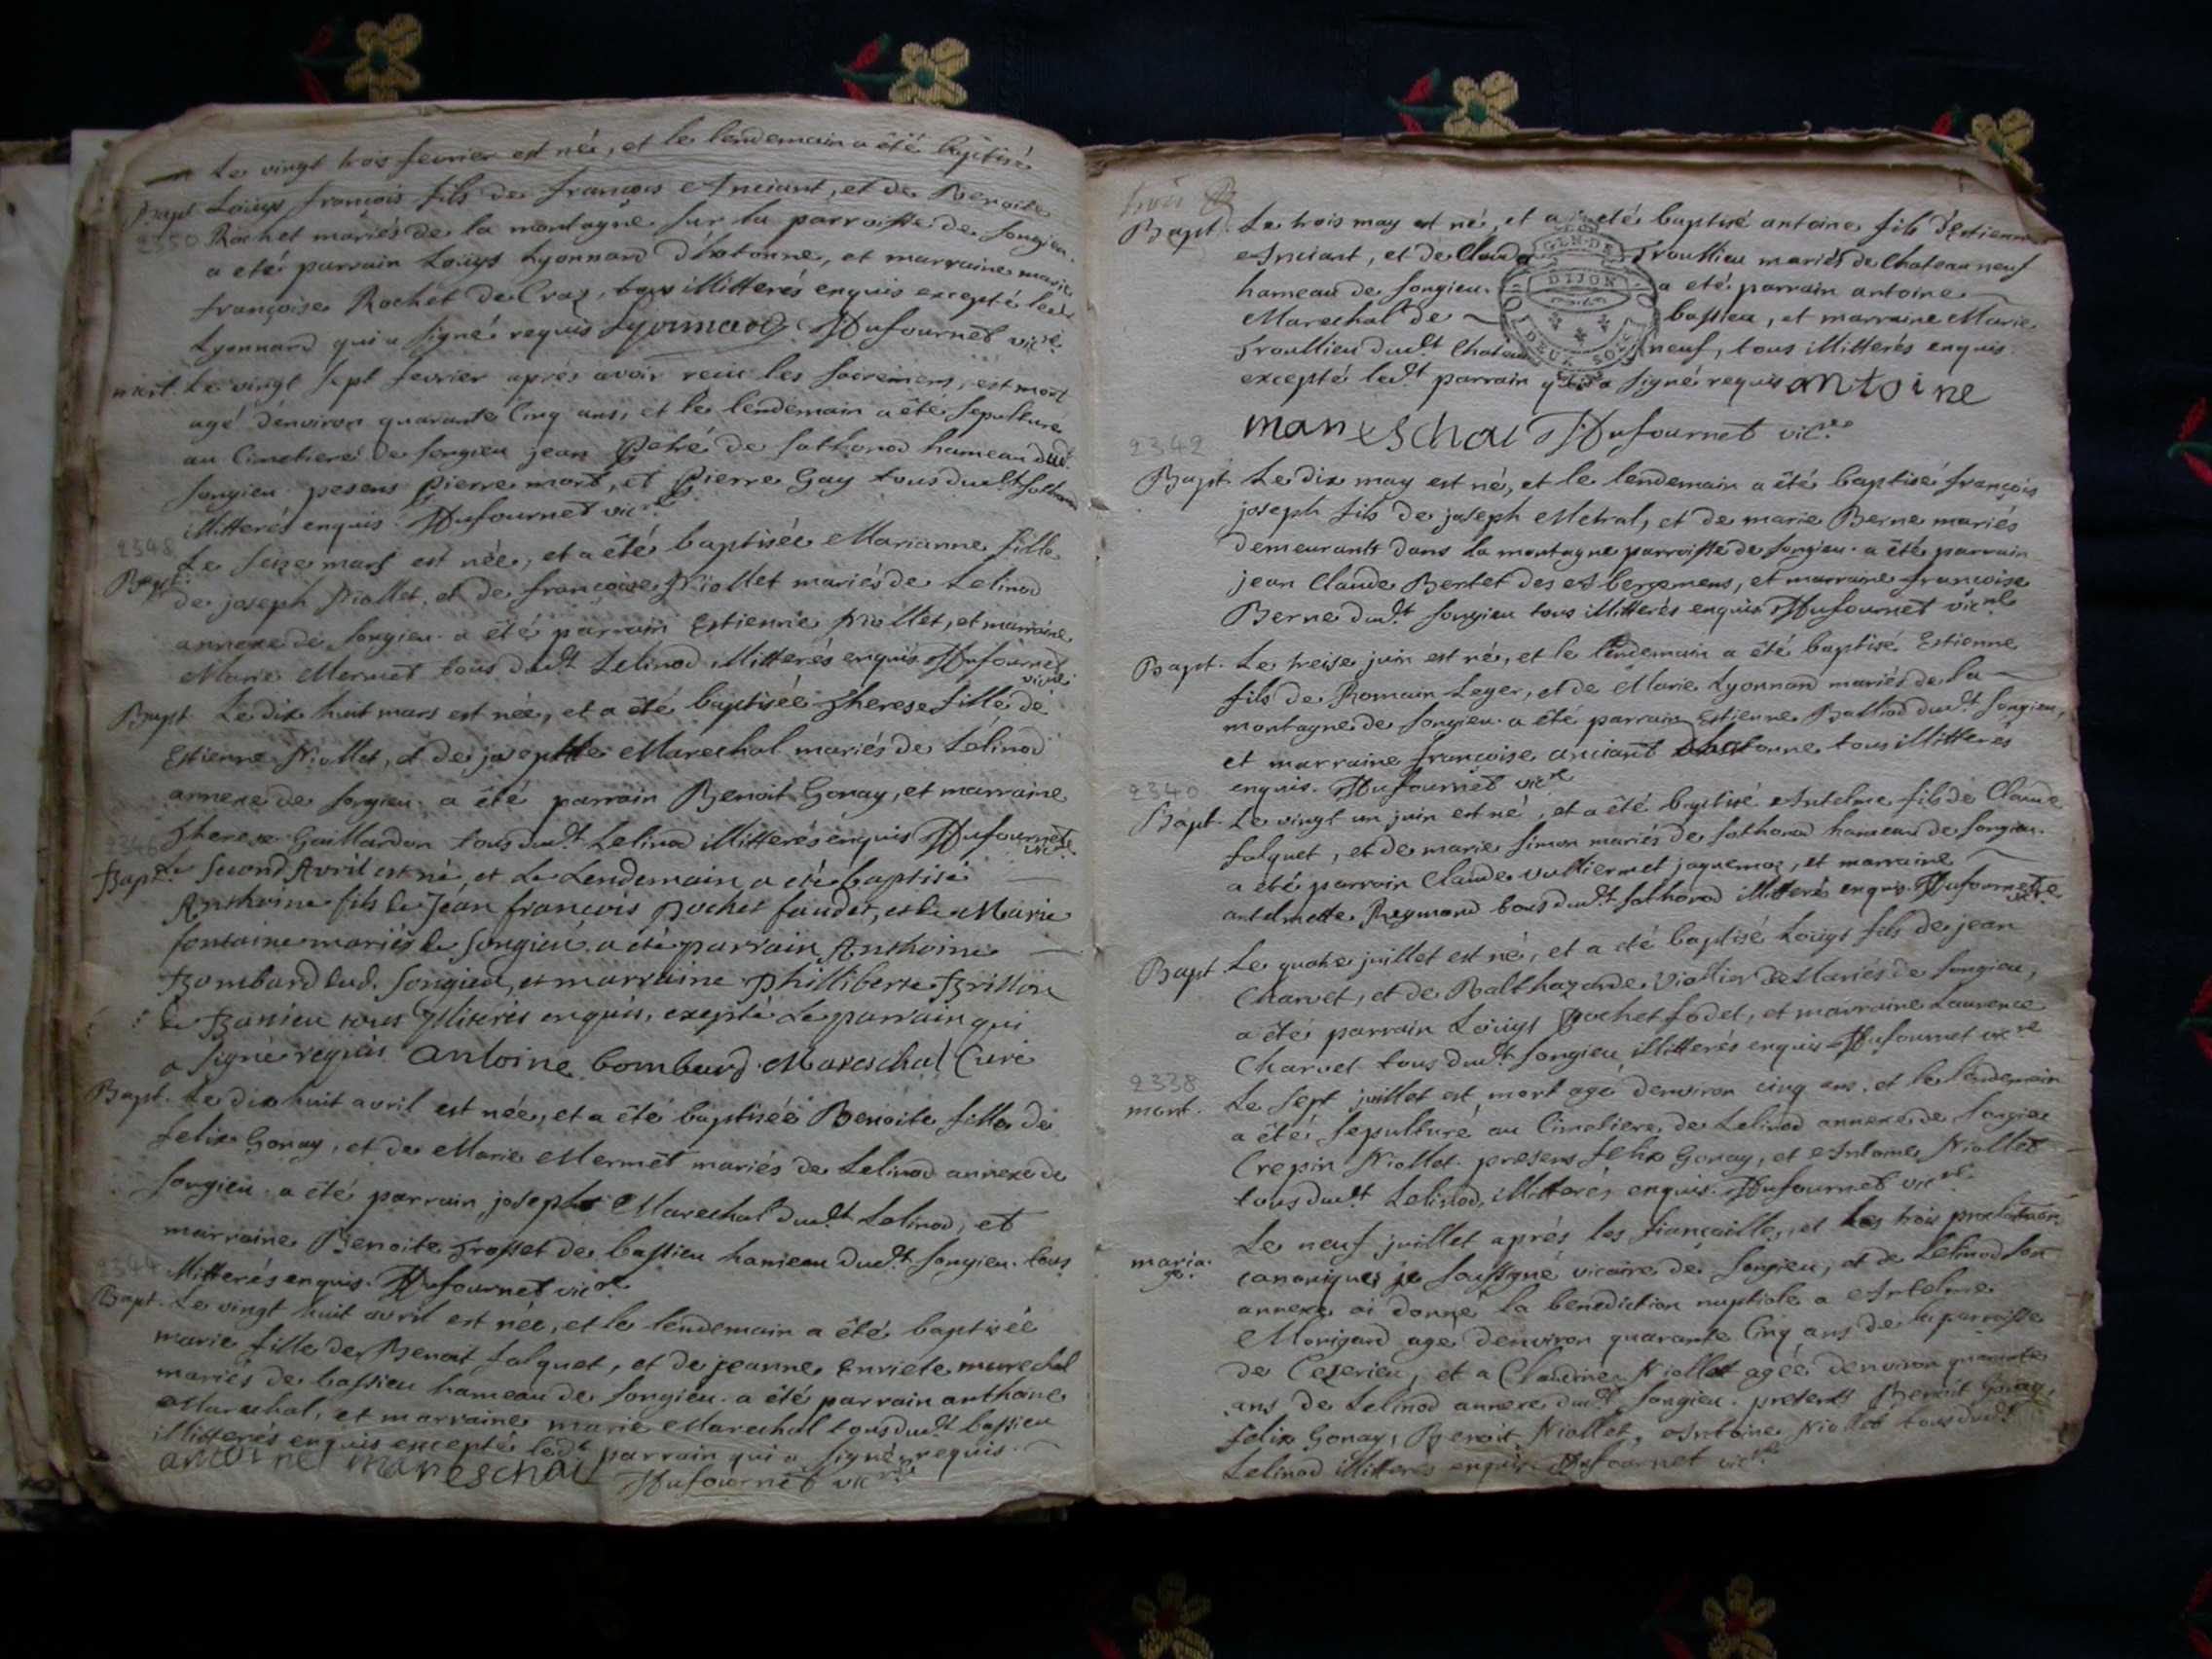 Le vingt trois fevrier est né, et le lendemain a été baptisé
Bapt Loüys françois fils de françois Anciant, et de Benoite
2350 Rochet mariés de la montagne sur la parroisse de songieu.
a eté parrain Loüys Lyonnard d'hotonne, et marraine marie
françoise Rochet de Craz, tous illitterés enquis excepté ledt
Lyonnard qui a signé requis Lyonnard Dufournet vicre
mort. Le vingt sept fevrier aprés avoir receu les sacremens, est mort
agé d'environ quarante Cinq ans, et le lendemain a été sepulturé
au Cimetiere de songieu jean de sothonod hameau dudt
songieu. presens pierre mort, et pierre Gay tous dudt sothonod
illitterés enquis. Dufournet vicre
2348 Le seize mars est née, et a été baptisée Marianne fille
Bapt. de joseph Niollet, et de françoise Niollet mariés de Lelinod
annexe de songieu. a été parrain Estienne Niollet, et marraine
Marie Mermet tous dudt Lelinod illitterés enquis Dufournet
vicre
Bapt Le dix huit mars est née, et a été baptisée Therese fille de
Estienne Niollet, et de josephte Marechal mariés de Lélinod
annexe de songieu. a été parrain Benoit Gonay, et marraine
2346 Therese Gaillardon tous dudt Lelinod illitterés enquis Dufournet
vicre
Bapt. Le second Avril est né, et Le Lendemain a été baptisé
Anthoine fils de Jéan françois pochet faudet, et de Marie
fontaine mariés de songieu. a été parrain Anthoine
Bombard dud. songieu, et marraine philliberte Brillon
de tous Illiterés enquis, excepté Le parrain qui
a signé requis Antoine bombard Mareschal Curé
Bapt. Le dix huit avril est née, et a été baptisée Benoite fille de
felix Gonay, et de Marie Mermet mariés de Lelinod annexe de
songieu. a été parrain joseph Marechal dudt Lelinod, et
marraine Benoite trosset de bassieu hameau dudt songieu. tous
2344 illitterés enquis. Dufournet vicre
Bapt. Le vingt huit avril est née, et le lendemain a été baptisée
marie fille de Benoit falquet, et de jeanne Enriete marechal
mariés de bassieu hameau de songieu. a été parrain anthoine
Marechal, et marraine marie Marechal tous dudt bassieu
illitterés enquis excepté ledt parrain qui a signé requis.
antoine mareschal Dufournet vicre
trois
Bapt. Le trois may est né, et a eté baptisé antoine fils d'Estienne
Anciant, et de Clauda Troullieu mariés de Chateau neuf
hameau de songieu. a eté parrain antoine
Marechal de bassieu, et marraine Marie
Troullieu dudt Chateau neuf, tous illitterés enquis.
excepté ledt parrain qui a signé requis antoine
mareschal Dufournet vicre
GEN. DE
DIJON
DEUX SOLS
2342
Bapt. Le dix may est né, et le lendemain a été baptisé françois
joseph fils de joseph Metral, et de marie Berne mariés
demeurants dans la montagne parroisse de songieu. a été parrain
jean Claude Bertet des Abergemens, et marraine françoise
Berne dudt songieu tous illitterés enquis Dufournet vicre
Bapt. Le treise juin est né, et le lendemain a été baptisé Estienne
fils de Romain Leger, et de Marie Lyonnard mariés de la
montagne de songieu. a été parrain Estienne Balliod dudt songieu,
et marraine françoise anciant d'hotonne tous illitteres
2340 enquis. Dufournet vicre
Bapt. Le vingt un juin est né, et a été baptisé Antelme fils de Claude
falquet, et de marie simon mariés de sothonod hameau de songieu.
a été parrain Claude vulliermet jaquemoz, et marraine
antelmette Reymond tous dudt sothonod illitterés enquis. Dufournet
vicre
Bapt Le quatre juillet est né, et a eté baptisé Loüys fils de jean
Charvet, et de Balthazarde Mariés de songieu,
a été parrain Loüys pochet fodet, et marraine Laurence
Charvet tous dudt songieu, illitterés enquis Dufournet vicre
2338
mort. Le sept juillet est mort agé d'environ cinq ans, et le lendemain
a été sepulturé au Cimetiere de Lelinod annexe de songieu
Crepin Niollet. presens felix Gonay, et Antoine Niollet
tous dudt Lelinod, illitterés enquis. Dufournet vicre
Le neuf juillet aprés les fiancailles, et les trois proclamaons
maria
ge. canoniques je soussigné vicaire de songieu, et de Lelinod son
annexe ai donné la benediction nuptiale a Antelme
Morigard agé d'environ quarante Cinq ans de la parroisse
de Cezerieu, et a Claudine Niollet agée d'environ quarante
ans de Lelinod annexe dudt songieu. presents Benoit Gonay,
felix Gonay, Benoit Niollet, Antoine Niollet tous dudt
Lelinod illitteres enquis Dufournet vicre